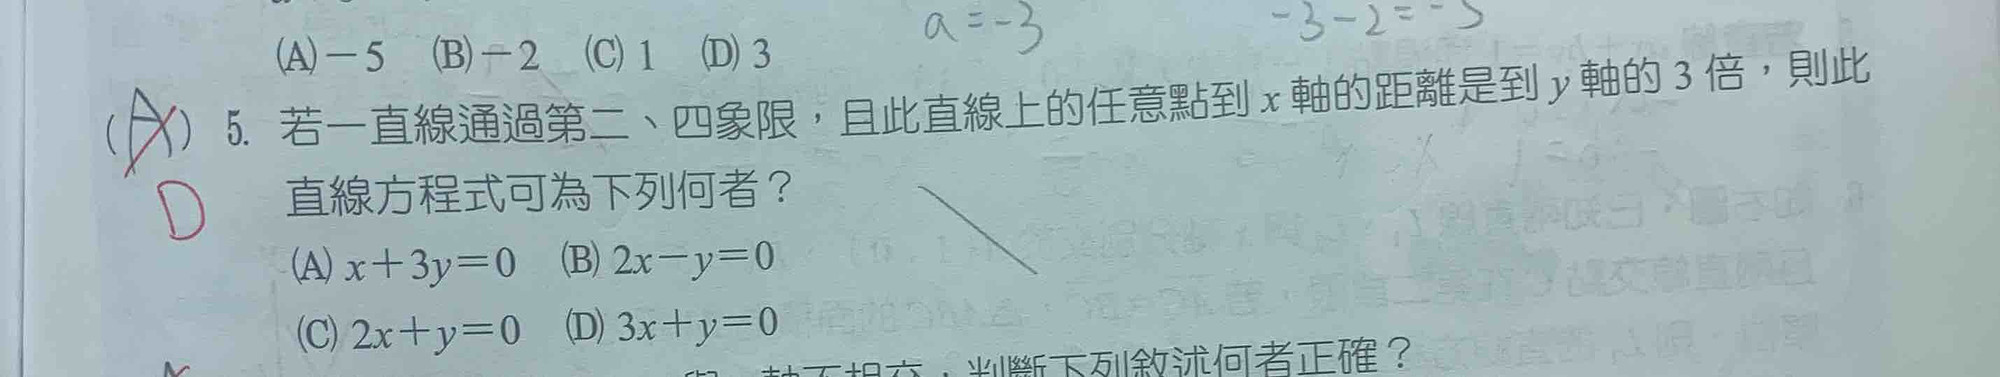 a=-3 -3-2=-5
(A)-5 (B)-2 (C) 1 (D) 3
(A) 5. 若一直線通過第二、四象限，且此直線上的任意點到 x 軸的距離是到 y 軸的 3 倍，則此
D 直線方程式可為下列何者？
(A) x+3y=0 (B) 2x-y=0
(C) 2x+y=0 (D) 3x+y=0
軸不相交，判斷下列敘述何者正確？